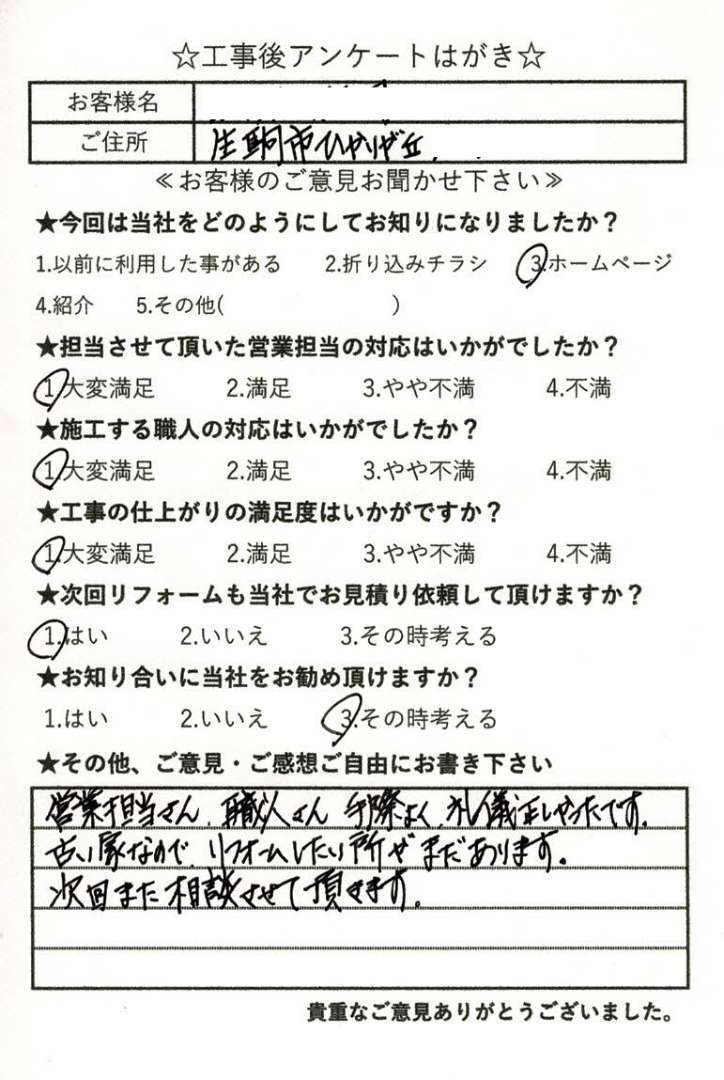 ☆工事後アンケートはがき☆
お客様名
ご住所 生駒市ひかりが丘
≪お客様のご意見お聞かせ下さい≫
★今回は当社をどのようにしてお知りになりましたか？
1.以前に利用した事がある 2.折り込みチラシ 3.ホームページ
4.紹介 5.その他( )
★担当させて頂いた営業担当の対応はいかがでしたか？
1.大変満足 2.満足 3.やや不満 4.不満
★施工する職人の対応はいかがでしたか？
1.大変満足 2.満足 3.やや不満 4.不満
★工事の仕上がりの満足度はいかがですか？
1.大変満足 2.満足 3.やや不満 4.不満
★次回リフォームも当社でお見積り依頼して頂けますか？
1.はい 2.いいえ 3.その時考える
★お知り合いに当社をお勧め頂けますか？
1.はい 2.いいえ 3.その時考える
★その他、ご意見・ご感想ご自由にお書き下さい
営業担当さん、職人さん 手際よく、礼儀正しかったです。
古い家なので、リフォームしたい所がまだあります。
次回また相談させて頂きます。
貴重なご意見ありがとうございました。